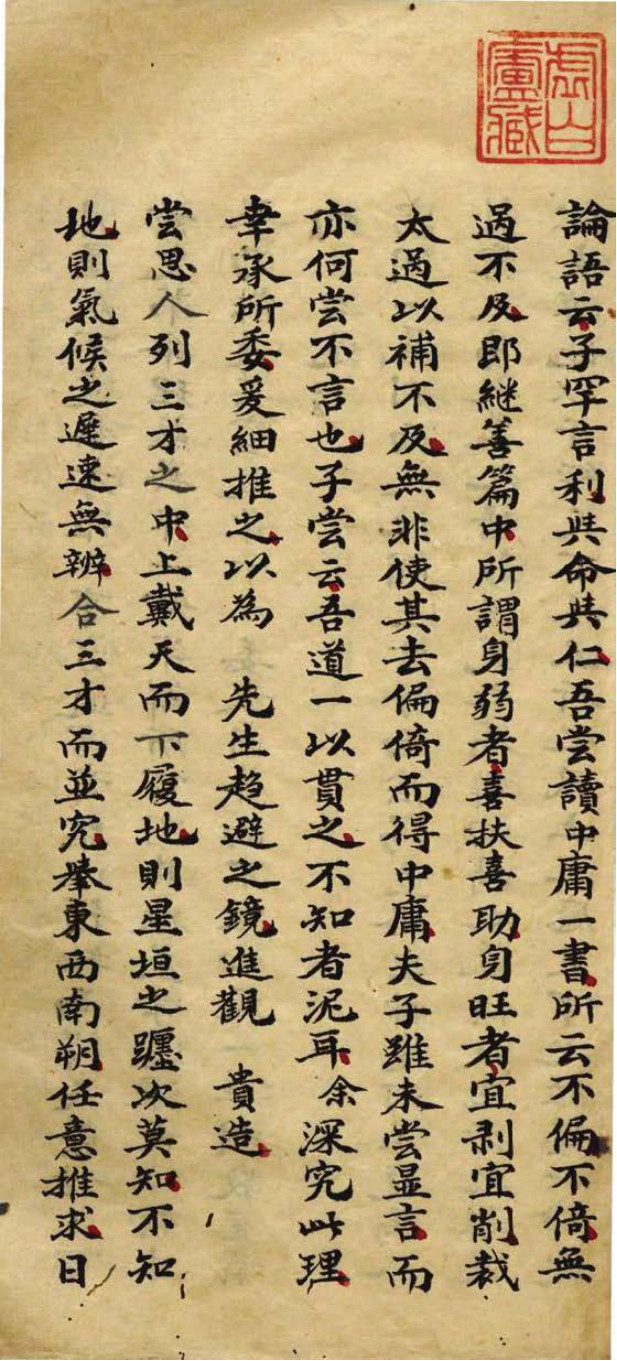 虛白廬藏
論語云子罕言利與命與仁吾嘗讀中庸一書所云不偏不倚無
過不及即継善篇中所謂身弱者喜扶喜助身旺者宜剥宜削裁
太過以補不及無非使其去偏倚而得中庸夫子雖未嘗显言而
亦何嘗不言也子嘗云吾道一以貫之不知者泥耳余深究此理
幸承所委爰細推之以為 先生趋避之鏡進觀 貴造
嘗思人列三才之中上戴天而下履地則星垣之躔次莫知不知
地則氣候之遲速無辨合三才而並究舉東西南朔任意推求日